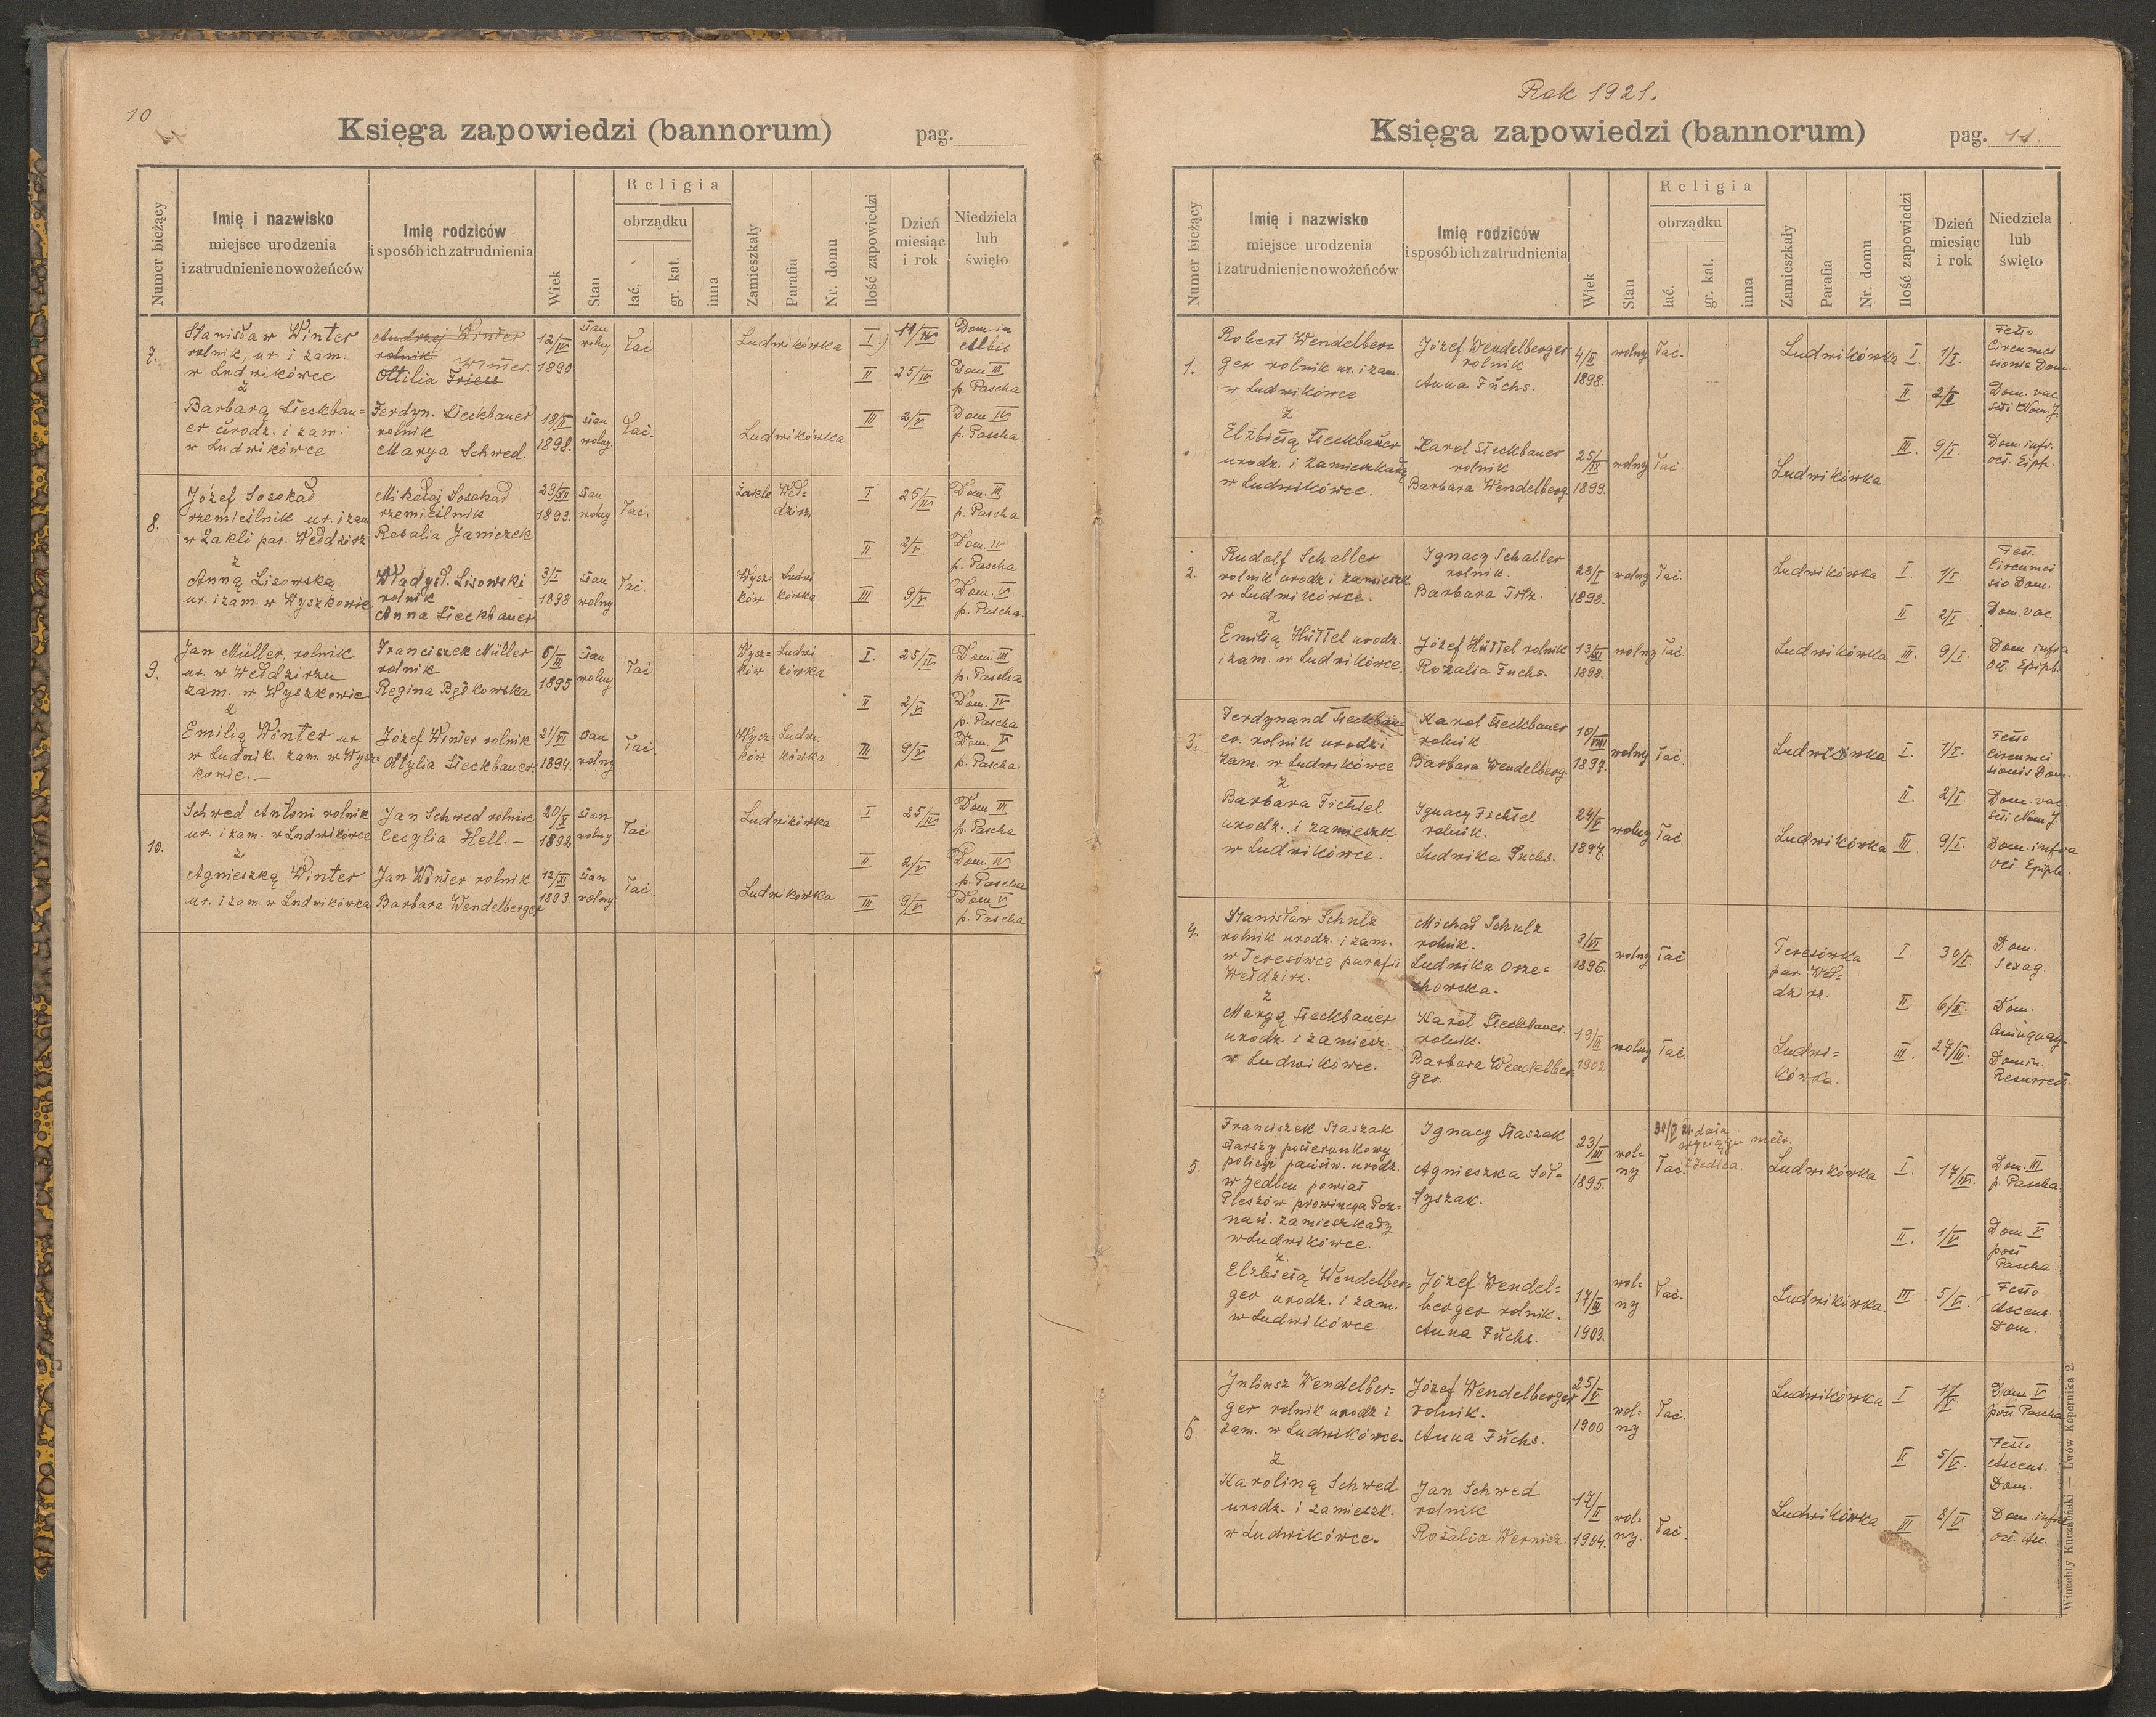 10
Księga zapowiedzi (bannorum) pag.
Numer bieżący
Imię i nazwisko
miejsce urodzenia
i zatrudnienie nowożeńców
Imię rodziców
i sposób ich zatrudnienia
Wiek
Stan
Religia
obrządku
łać.
gr. kat.
inna
Zamieszkały
Parafia
Nr. domu
Ilość zapowiedzi
Dzień
miesiąc
i rok
Niedziela
lub
święto
7.
Stanisław Winter
rolnik, ur. i zam.
w Ludwikówce
z
Barbarą Steckbau=
er urodz. i zam.
w Ludwikówce
Andrzej Winter
rolnik
Winter.
Ottilia Friess
Ferdyn. Steckbauer
rolnik
Marya Schwed.
12/IV
1890
18/II
1898.
stan
wolny
stan
wolny.
łać
łać.
Ludwikówka
Ludwikówka
I.) 11/IV Dom. in
Albis
II 25/IV Dom III
p. Pascha
III 2/V Dom IV
p. Pascha.
8.
Józef Sosokad
rzemieślnik ur. i zam
w Żakli par. Wełdzirz
z
Anną Lisowską
ur. i zam. w Wyszkowie
Mikołaj Sosokad
rzemieślnik
Rosalia Janiczek
Władysł. Lisowski
rolnik
Anna Steckbauer
29/XII
1893.
3/I
1898
stan
wolny
stan
wolny
łać.
łać.
Żakle Weł=
dzirz
Wysz= Ludwi
ków kówka
I 25/IV Dom. III
p. Pascha
II 2/V. Dom. IV
p. Pascha
III 9/V Dom. V
p. Pascha.
9.
Jan Müller, rolnik
ur. w Wełdzirzu
zam. w Wyszkowie
z
Emilią Winter ur.
w Ludwik. zam. w Wysz=
kowie.—
Franciszek Müller
rolnik
Regina Będkowska
Józef Winter rolnik
Ottylia Steckbauer.
6/III
1895
21/XI
1894.
stan
wolny
stan
wolny
łać
łać
Wysz= Ludwi
ków kówka
Wycz= Ludwi=
ków kówka
I. 25/IV. Dom III
p. Pascha
II 2/V Dom. IV
p. Pascha
III 9/V Dom. V
p. Pascha.
10.
Schwed Antoni rolnik
ur. i zam. w Ludwikówce
z
Agnieszką Winter
ur. i zam. w Ludwikówka
Jan Schwed rolnik
Cecylia Hell. —
Jan Winter rolnik
Barbara Wendelberger
20/X
1892
12/XI
1893.
stan
wolny
stan
wolny
łać
łać.
Ludwikówka
Ludwikówka
I 25/IV Dom III
p. Pascha
II 2/V Dom. IV
p. Pascha
III 9/V Dom V
p. Pascha
Rok 1921.
Księga zapowiedzi (bannorum) pag. 11.
Numer bieżący
Imię i nazwisko
miejsce urodzenia
i zatrudnienie nowożeńców
Imię rodziców
i sposób ich zatrudnienia
Wiek
Stan
Religia
obrządku
łać.
gr. kat.
inna
Zamieszkały
Parafia
Nr. domu
Ilość zapowiedzi
Dzień
miesiąc
i rok
Niedziela
lub
święto
1.
Robert Wendelber=
ger rolnik ur. i zam.
w Ludwikówce
z
Elżbietą Steckbauer
urodz. i zamieszkałą
w Ludwikówce.
Józef Wendelberger
rolnik
Anna Fuchs.
Karol Steckbauer
rolnik
Barbara Wendelberg.
4/II
1898.
25/IX
1899.
wolny
wolny
łać.
łać.
Ludwikówka
Ludwikówka
I. 1/I. Festo
Circumci
sionis Dom.
II 2/I Dom. vac.
scti Nom. J.
III. 9/I. Dom. infr.
oct. Epiph.
2.
Rudolf Schaller
rolnik urodz i zamieszk.
w Ludwikówce.
z
Emilią Hüttel urodz.
i zam. w Ludwikówce.
Ignacy Schaller
rolnik.
Barbara Tilz.
Józef Hüttel rolnik
Rozalia Fuchs.
28/I
1898.
13/XI
1898.
wolny
wolny
łać.
łać.
Ludwikówka
Ludwikówka
I. 1/I. Fest.
Circumci
sio Dom.
II 2/I Dom. vac
III. 9/I. Dom infra
Oct. Epiph.
3.
Ferdynand Steckbau=
er rolnik urodz i
zam. w Ludwikówce
z
Barbara Fichtel
urodz. i zamieszk.
w Ludwikówce.
Karol Steckbauer
rolnik
Barbara Wendelberg.
Ignacy Fichtel
rolnik.
Ludwika Fuchs.
10/VIII
1897.
24/V
1897.
wolny
wolny
łać.
łać.
Ludwikówka
Ludwikówka
I. 1/I. Festo
Circumci
sionis Dom.
II. 2/I. Dom. vac.
sct. Nom J.
III. 9/I. Dom. infra
oct. Epiph.
4.
Stanisław Schulz
rolnik urodz. i zam.
w Teresówce parafii
Wełdzirz.
z
Maryą Steckbauer
urodz. i zamiesz.
w Ludwikówce.
Michał Schulz
rolnik.
Ludwika Orze=
chowska.
Karol Steckbauer.
rolnik.
Barbara Wendelber=
ger.
3/VI
1896.
19/II
1902
wolny
wolny
łać
łać.
Teresówka
par. Weł=
dzirz.
Ludwi=
kówka.
I. 30/I. Dom.
Sexag.
II 6/II. Dom.
Quinquag.
III. 27/III. Domin.
Resurrect.
5.
Franciszek Staszak
starszy posterunkowy
policyi państw. urodz.
w Jedlcu powiat
Pleszów prowincya Poz=
nań. zamieszkały
w Ludwikówce.
z
Elżbietą Wendelber=
ger urodz. i zam.
w Ludwikówce.
Ignacy Staszak
Agnieszka Soł=
tyszak.
Józef Wendel=
berger rolnik.
Anna Fuchs.
23/III
1895.
17/III
1903.
wol=
ny
wol=
ny
metr.
z Jedlca
łać.
łać.
Ludwikówka
Ludwikówka
I. 17/IV. Dom. III
p. Pascha
II. 1/V Dom V
post
Pascha.
III 5/V. Festo
Ascens.
Dom.
6.
Juliusz Wendelber=
ger rolnik urodz i
zam. w Ludwikówce.
z
Karoliną Schwed
urodz. i zamieszk.
w Ludwikówce.
Józef Wendelberger
rolnik.
Anna Fuchs.
Jan Schwed
rolnik
Rozalia Wernicz.
25/V
1900
17/II
1904.
wol=
ny
wol=
ny.
łać.
łać.
Ludwikówka
Ludwikówka
I 1/V Dom. V
post Pascha
II 5/V. Festo
Ascens.
Dom.
III 8/V Dom. infra
oct. As.
Wincenty Kuczabiński — Lwów Kopernika 2.